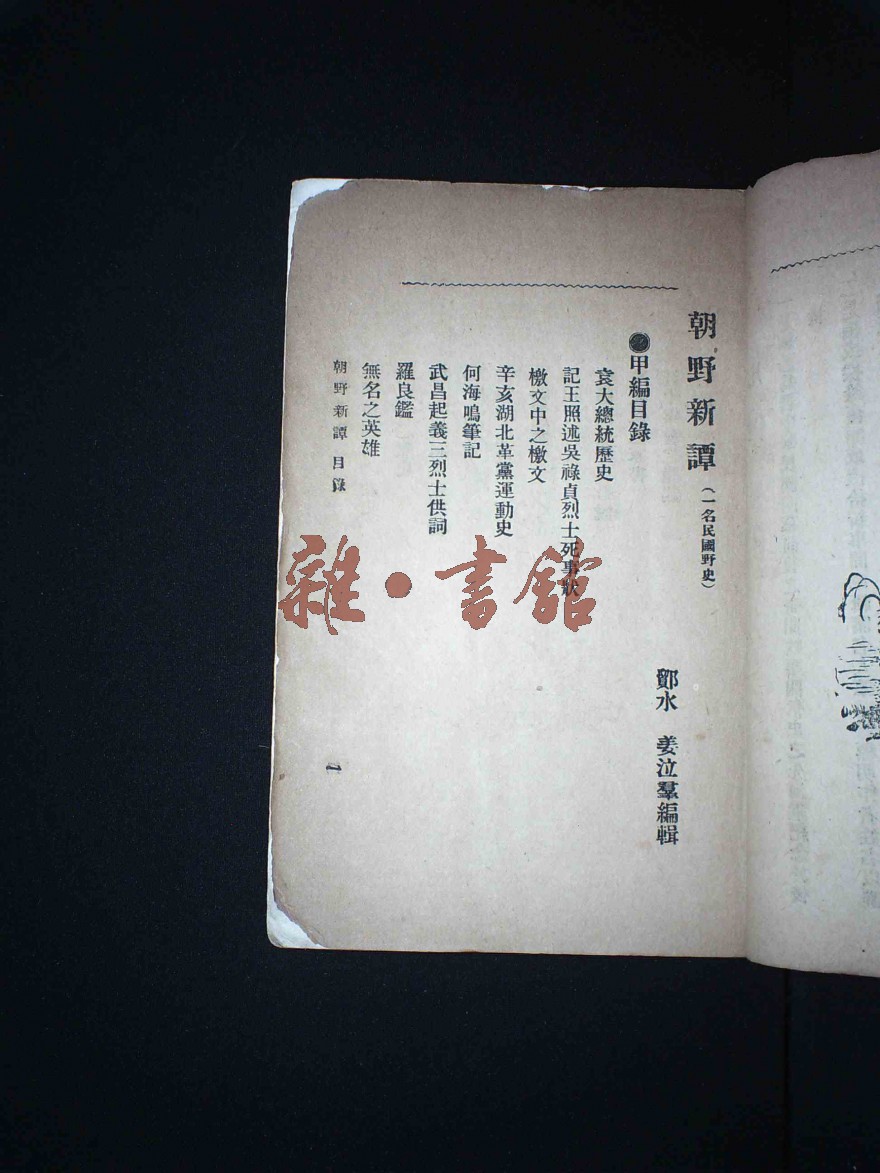 朝野新譚(一名民國野史)
鄮水 姜泣羣編輯
●甲編目錄
袁大總統歷史
記王照述吳祿貞烈士死事狀
檄文中之檄文
辛亥湖北革黨運動史
何海鳴筆記
武昌起義三烈士供詞
羅良鑑
無名之英雄
朝野新譚 目錄
一
雜·書館